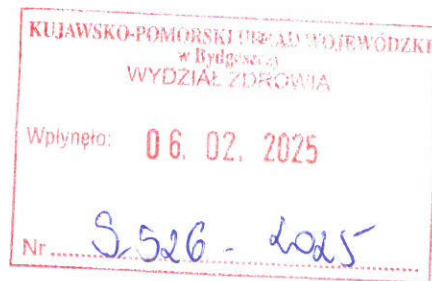 KUJAWSKO-POMORSKI URZĄD WOJEWÓDZKI
w Bydgoszczy
WYDZIAŁ ZDROWIA
Wpłynęło: 06. 02. 2025
Nr ..... S-526 - 2025